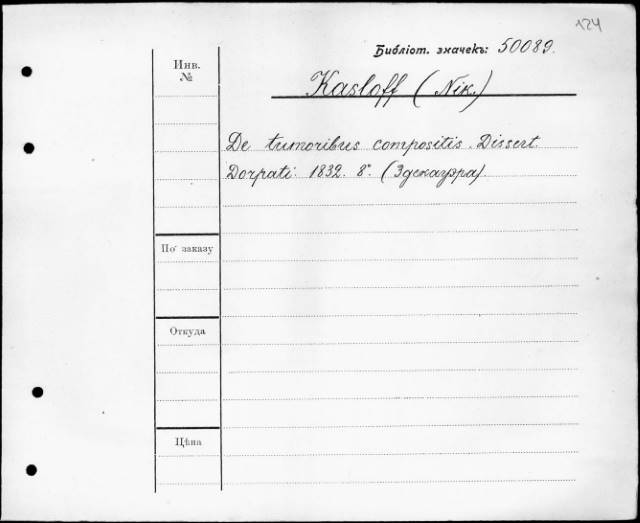 124
Библіот. значекъ: 50089.
Инв.
№
Kasloff (Nik.)
De tumoribus compositis. Dissert.
Dorpati: 1832. 8°. (Эдекауэра)
По заказу
Откуда
Цѣна